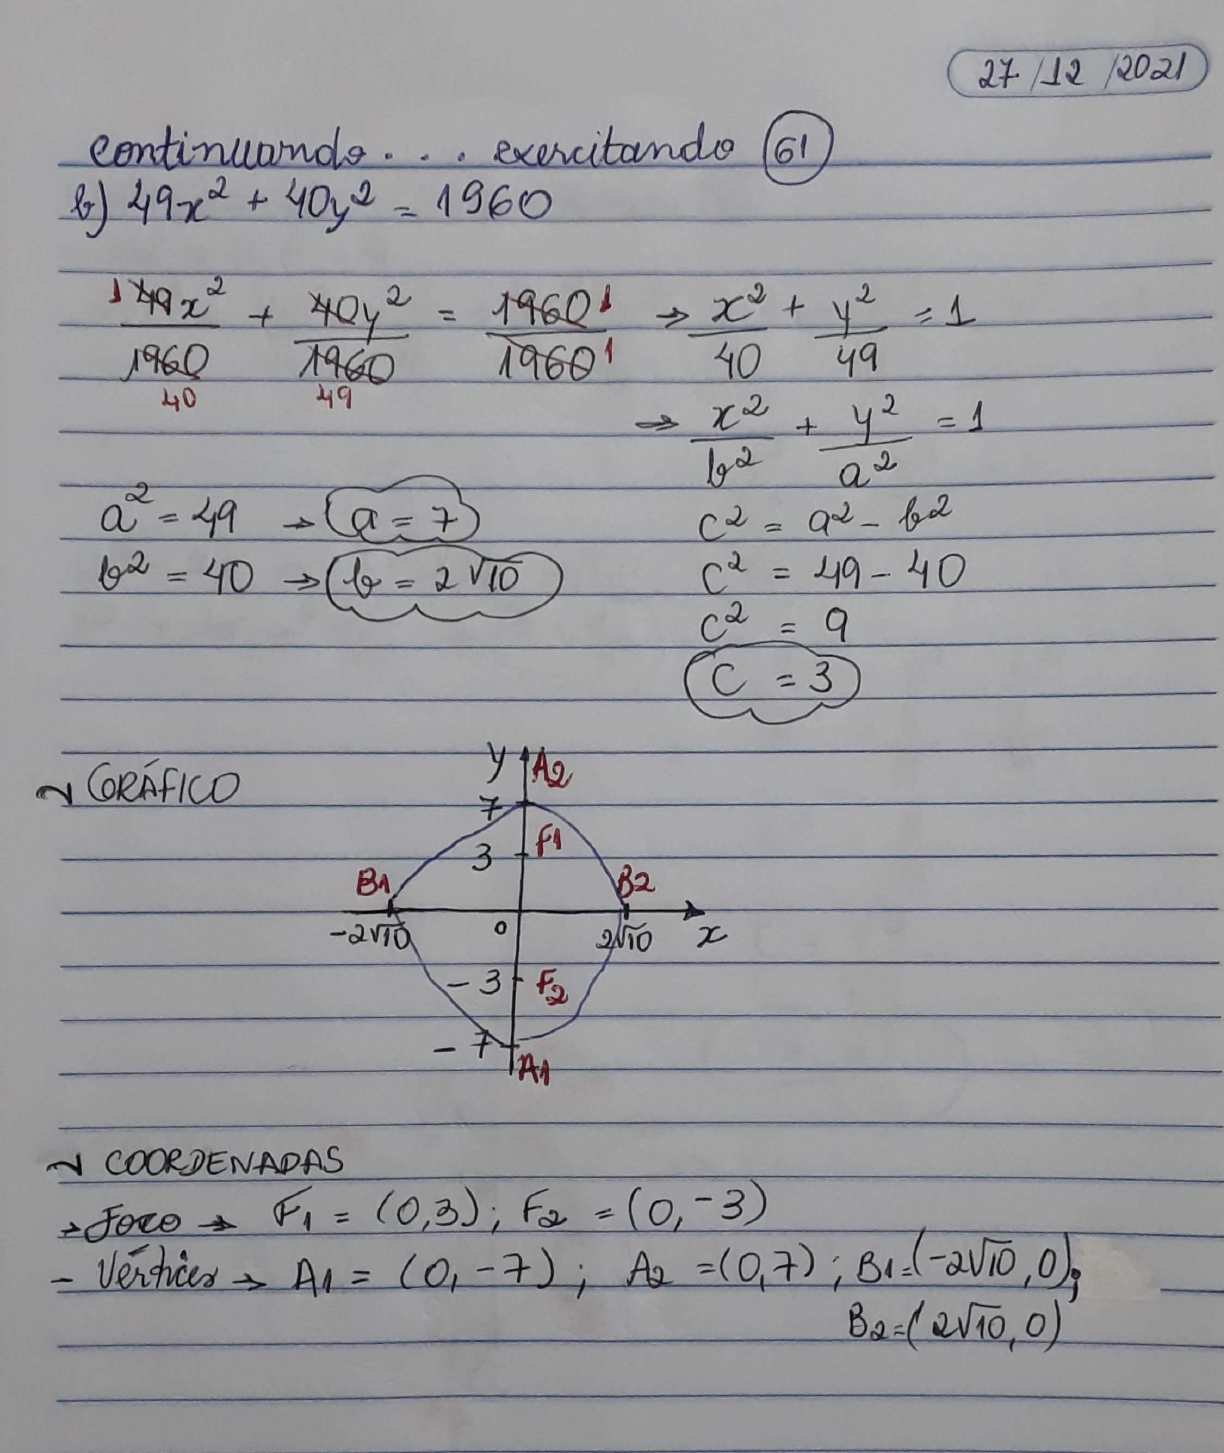 27/12/2021
continuando... exercitando 61
b) 49x² + 40y² = 1960
¹49x²/1960 40 + 40y²/1960 49 = 1960¹/1960¹ → x²/40 + y²/49 = 1
→ x²/b² + y²/a² = 1
a² = 49 → a = 7 c² = a² - b²
b² = 40 → b = 2√10 c² = 49 - 40
c² = 9
c = 3
~ GRÁFICO
y A2
7
3 F1
B1 B2
-2√10 0 2√10 x
-3 F2
-7
A1
~ COORDENADAS
→ Foco → F1 = (0,3); F2 = (0,-3)
- Vértices → A1 = (0,-7); A2 = (0,7); B1=(-2√10,0);
B2=(2√10,0)